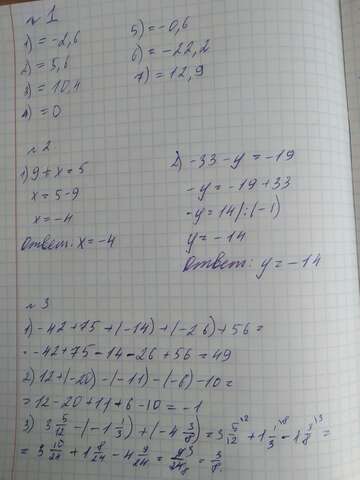 № 1
1) = -2,6
2) = 5,6
3) = 10,4
4) = 0
5) = -0,6
6) = -22,2
7) = 12,9
№ 2
1) 9 + x = 5
x = 5-9
x = -4
Ответ: x = -4
2) -33 - y = -19
-y = -19 + 33
-y = 14 /:(-1)
y = -14
Ответ: y = -14
№ 3
1) -42 + 75 + (-14) + (-26) + 56 =
= -42 + 75 - 14 - 26 + 56 = 49
2) 12 + (-20) - (-11) - (-6) - 10 =
= 12 - 20 + 11 + 6 - 10 = -1
3) 3 5/12 - (-1 1/3) + (-4 3/8) = 3 5/12 + 1 1/3 - 1 3/8 =
= 3 10/24 + 1 8/24 - 4 9/24 = 3/8